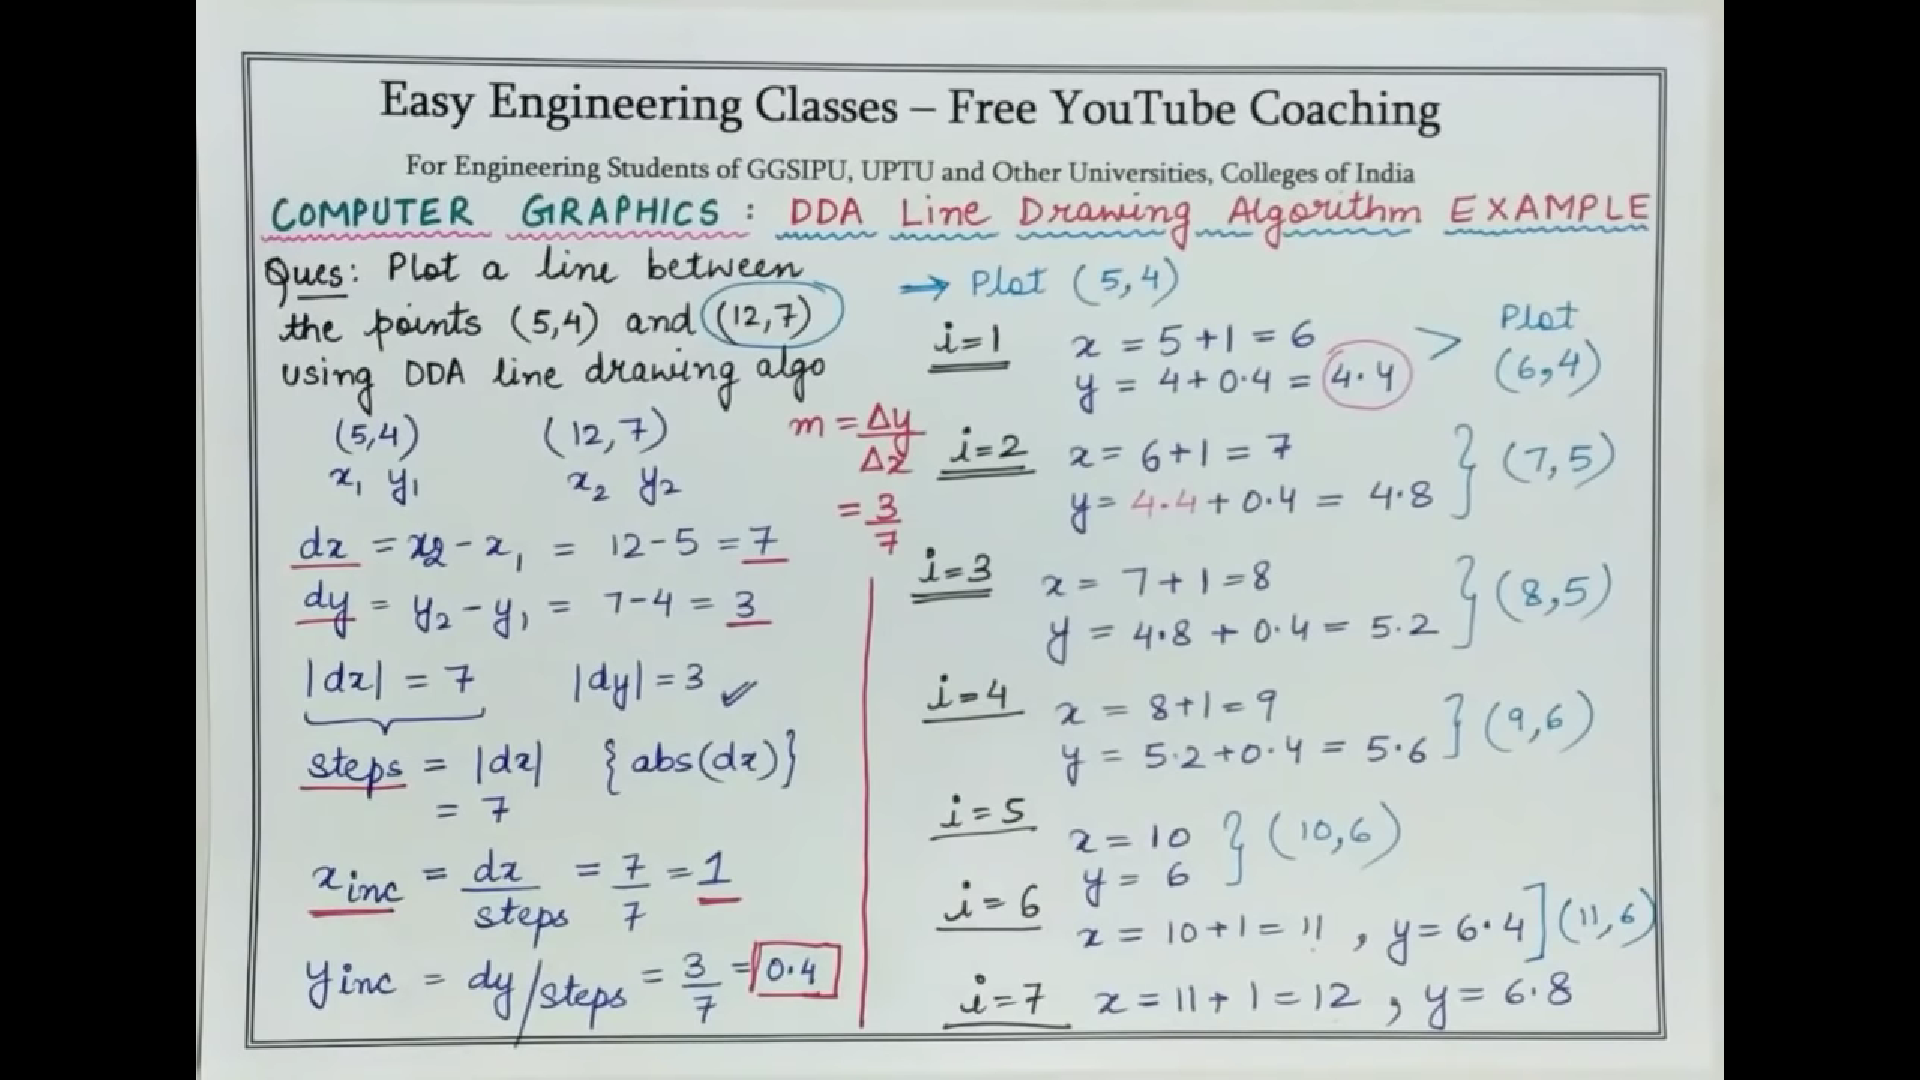 Easy Engineering Classes – Free YouTube Coaching
For Engineering Students of GGSIPU, UPTU and Other Universities, Colleges of India
COMPUTER GRAPHICS : DDA Line Drawing Algorithm EXAMPLE
Ques: Plot a line between
the points (5,4) and (12,7)
using DDA line drawing algo
(5,4) (12,7)
x₁ y₁ x₂ y₂
m = Δy/Δx
= 3/7
dx = x₂ - x₁ = 12 - 5 = 7
dy = y₂ - y₁ = 7-4 = 3
|dx| = 7 |dy| = 3 ✓
steps = |dx| {abs(dx)}
= 7
xinc = dx/steps = 7/7 = 1
yinc = dy/steps = 3/7 = 0.4
→ Plot (5,4)
i=1 x = 5+1 = 6 > Plot
y = 4+0.4 = 4.4 (6,4)
i=2 x = 6+1 = 7
y = 4.4+0.4 = 4.8 } (7,5)
i=3 x = 7+1=8
y = 4.8 + 0.4 = 5.2 } (8,5)
i=4 x = 8+1=9
y = 5.2+0.4 = 5.6 } (9,6)
i=5 x = 10
y = 6 } (10,6)
i=6 x = 10+1 = 11 , y = 6.4 ] (11,6)
i=7 x = 11+1 = 12 , y = 6.8